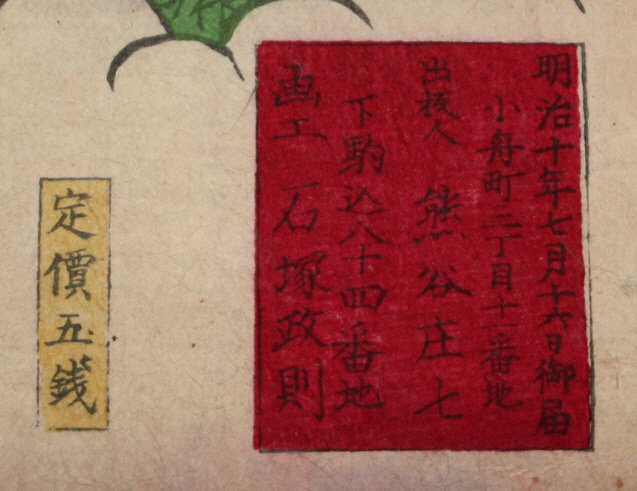 明治十年七月十六日御届
小舟町三丁目十一番地
出板人 熊谷庄七
下駒込八十四番地
画工 石塚政則
定價五銭